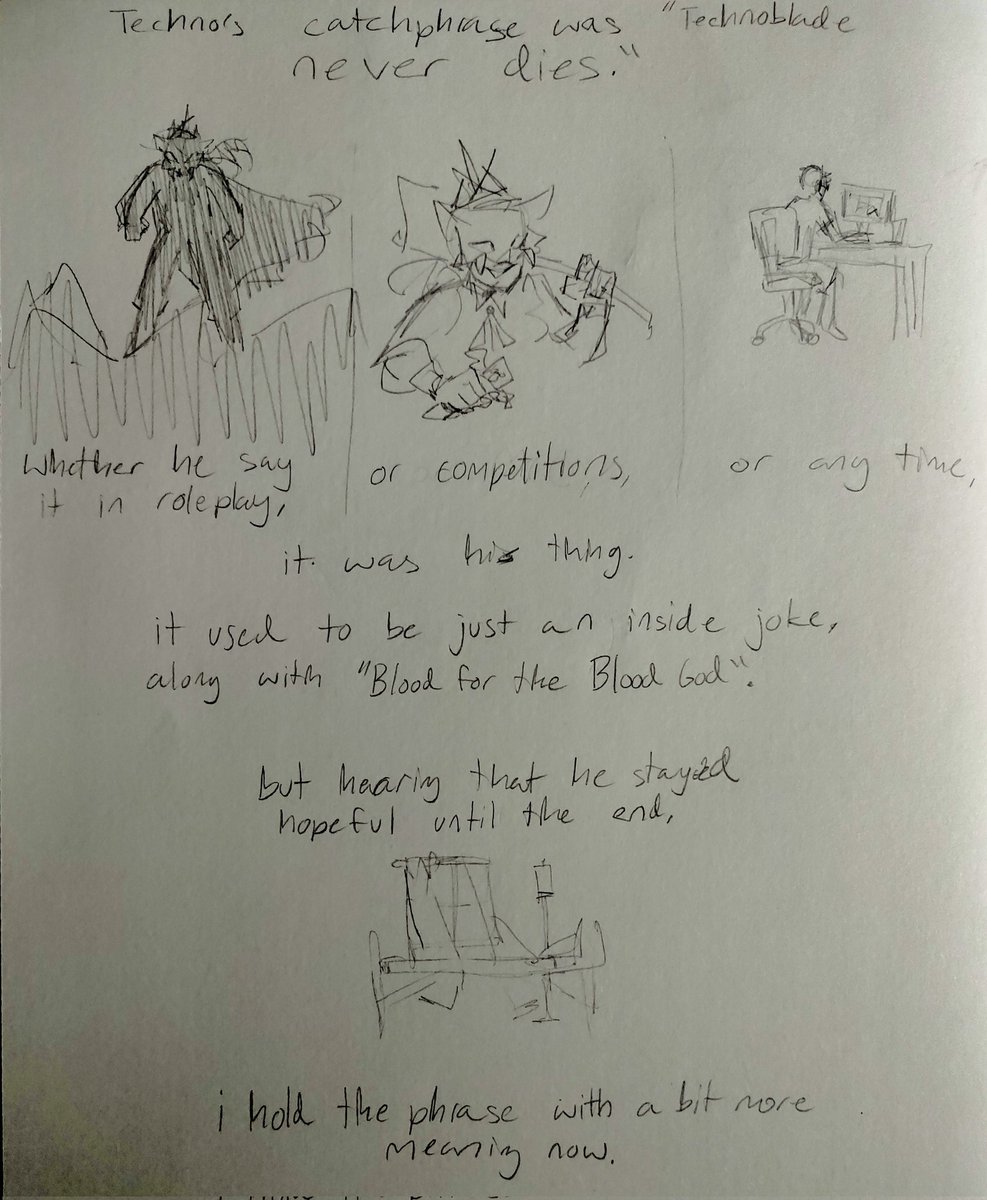 Techno's catchphrase was "Technoblade
never dies."
Whether he say
it in roleplay,
or competitions,
or any time,
it was his thing.
it used to be just an inside joke,
along with "Blood for the Blood God".
but hearing that he stayed
hopeful until the end,
i hold the phrase with a bit more
meaning now.